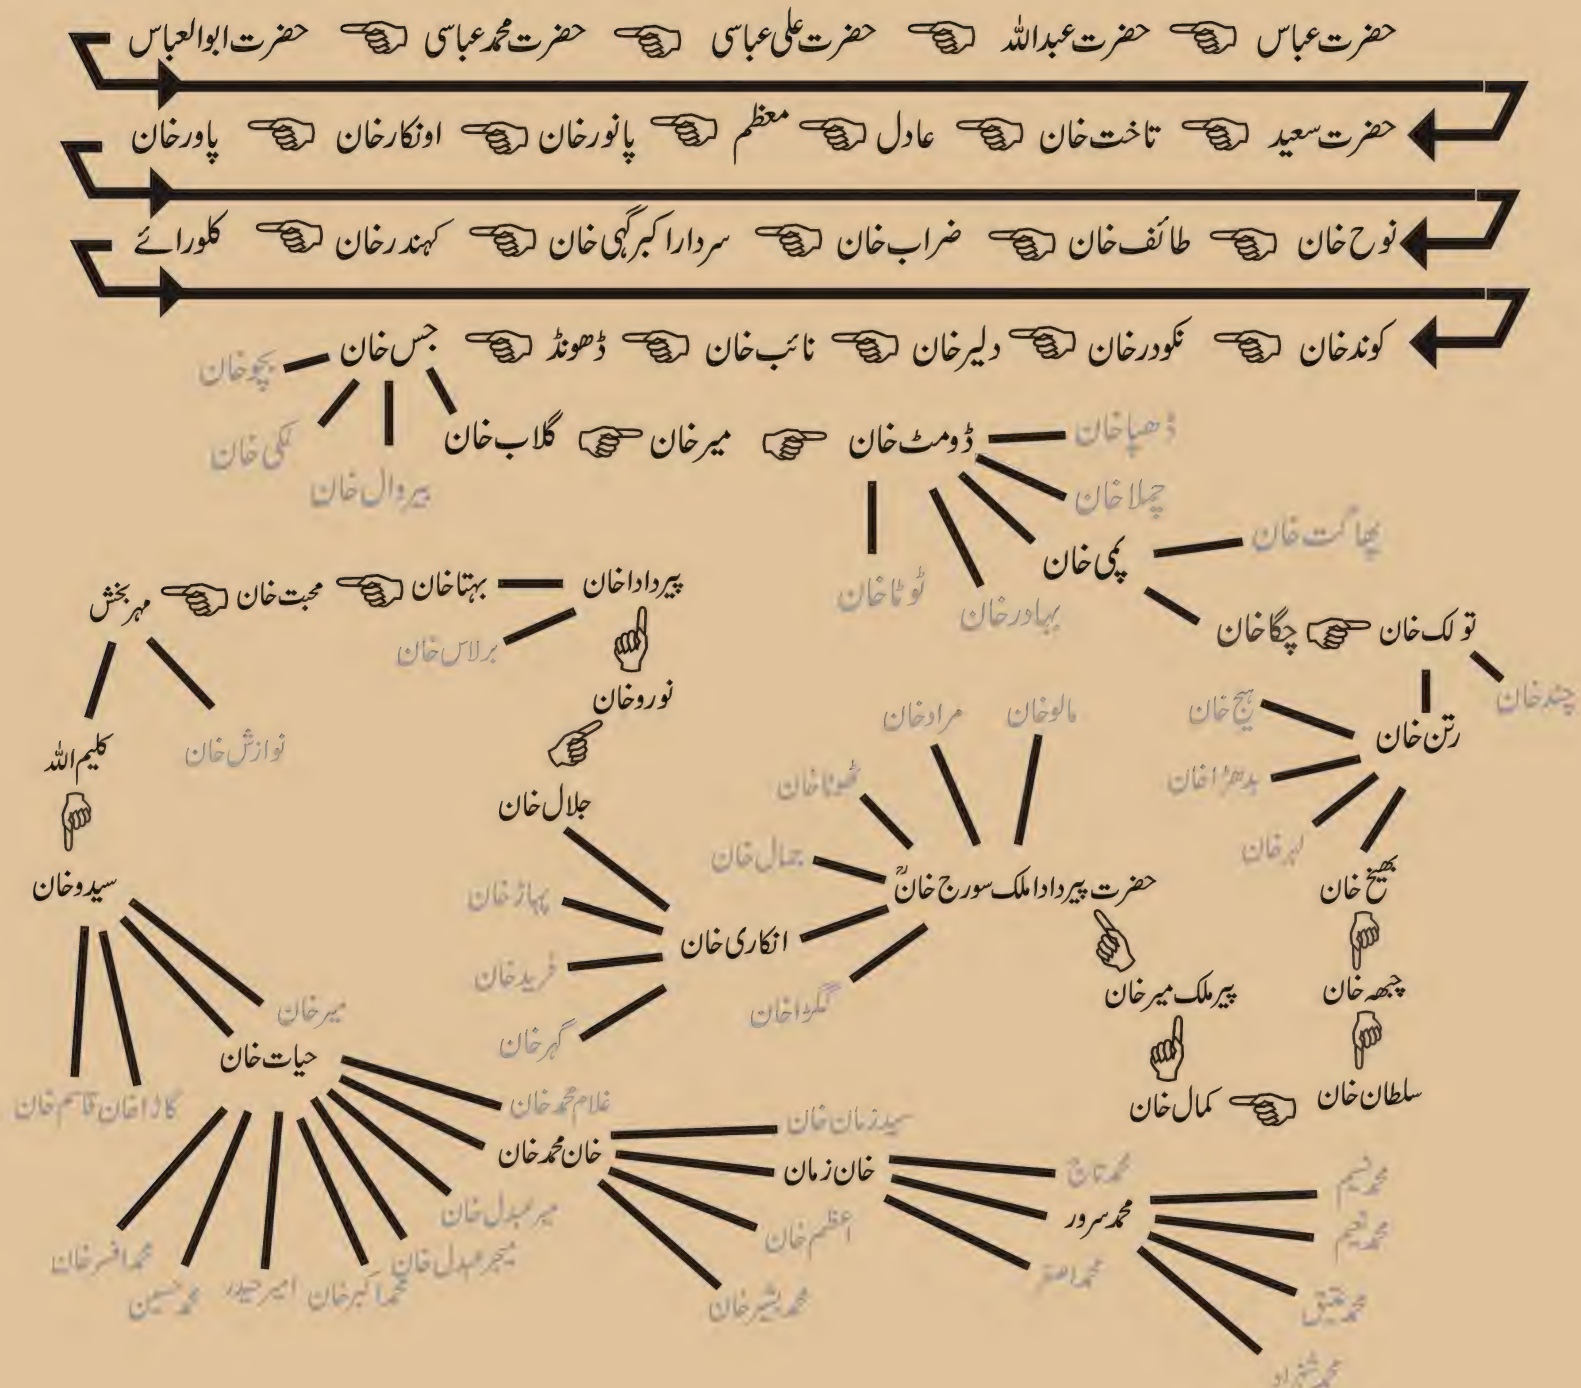 حضرت عباس حضرت عبداللہ حضرت علی عباسی حضرت محمد عباسی حضرت ابوالعباس
حضرت سعید تاخت خان عادل معظم پانور خان اونکار خان پاور خان
نوح خان طائف خان ضراب خان سردار اکبر گہی خان کہندر خان کلورائے
کوند خان نکودر خان دلیر خان نائب خان ڈھونڈ جس خان
بچو خان
لکی خان
پیروال خان
گلاب خان میر خان ڈومٹ خان
ڈھپا خان
چملا خان
پمی خان
بہادر خان
ٹوٹا خان
پھاگت خان
چگا خان تولک خان
چند خان
رتن خان
ہیج خان
بدھڑا خان
لہر خان
بھیخ خان
چبھہ خان
سلطان خان کمال خان
پیر ملک میر خان
حضرت پیر دادا ملک سورج خانؒ
مالو خان
مراد خان
ٹھوٹا خان
جمال خان
انکاری خان
گگڑا خان
جلال خان
پہاڑ خان
فرید خان
گہر خان
نورو خان
پیر دادا خان
بہتا خان محبت خان مہر بخش
برلاس خان
نوازش خان
کلیم اللہ
سیدو خان
میر خان
حیات خان
کاڑا خان قاسم خان
غلام محمد خان
خان محمد خان
میر عبدل خان
میجر عبدل خان
محمد اکبر خان
امیر حیدر
محمد حسین
محمد افسر خان
سید زمان خان
خان زمان
اعظم خان
محمد بشیر خان
محمد تاج
محمد سرور
محمد اصغر
محمد نسیم
محمد نعیم
محمد عتیق
محمد شہزاد